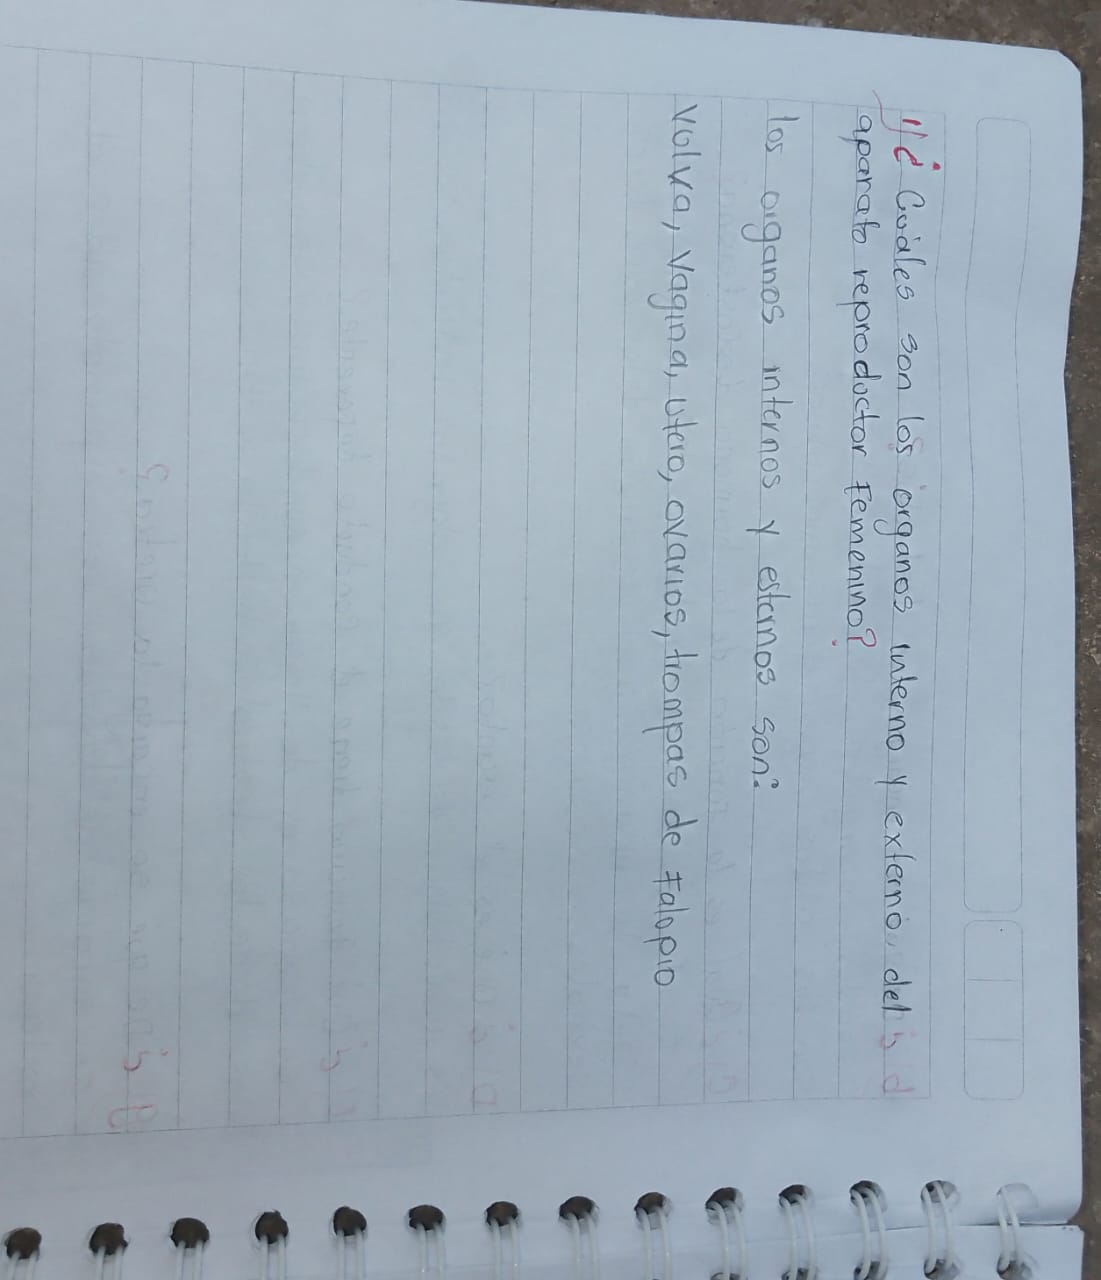 1) ¿ Cuáles son los órganos interno y externo, del
aparato reproductor femenino?
los organos internos y esternos son:
Vulva, vagina, utero, ovarios, trompas de falopio